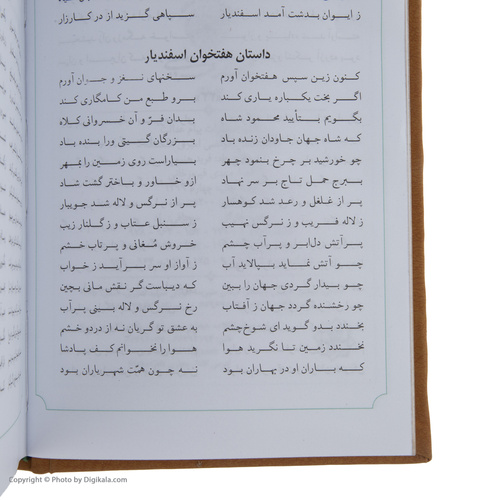 ز ایوان بدشت آمد اسفندیار سپاهی گزید از در کارزار
داستان هفتخوان اسفندیار
کنون زین سپس هفتخوان آورم سخنهای نغز و جوان آورم
اگر بخت یکباره یاری کند برو طبع من کامگاری کند
بگویم بتأیید محمود شاه بدان فرّ و آن خسروانی کلاه
که شاه جهان جاودان زنده باد بزرگان گیتی ورا بنده باد
چو خورشید بر چرخ بنمود چهر بیاراست روی زمین را بمهر
ببرج حمل تاج بر سر نهاد ازو خاور و باختر گشت شاد
پر از غلغل و رعد شد کوهسار پر از نرگس و لاله شد جویبار
ز لاله فریب و ز نرگس نهیب ز سنبل عتاب و ز گلنار زیب
پرآتش دل ابر و پرآب چشم خروش مُغانی و پرتاب خشم
چو آتش نماید بپالاید آب ز آواز او سر برآید ز خواب
چو بیدار گردی جهان را ببین که دیباست گر نقش مانی بچین
چو رخشنده گردد جهان ز آفتاب رخ نرگس و لاله بینی پرآب
بخندد بدو گوید ای شوخ‌چشم به عشق تو گریان نه از درد و خشم
نخندد زمین تا نگرید هوا هوا را نخوانم کف پادشا
که باران او در بهاران بود نه چون همّت شهریاران بود
Copyright © Photo by Digikala.com